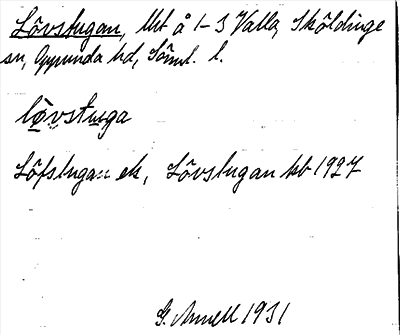 Lövstugan, lht å 1-3 Valla, Sköldinge
sn, Oppunda hd, Söml. l.
lövstuga
Löfstugan ek, Lövstugan kb 1927
G. Annell 1931